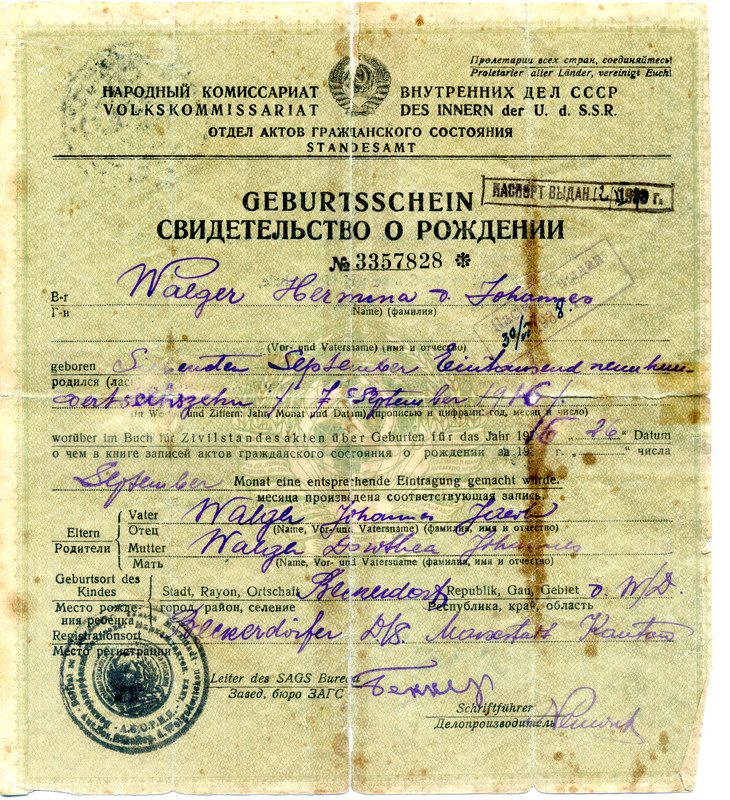 Пролетарии всех стран, соединяйтесь!
Proletarier aller Länder, vereinigt Euch!
НАРОДНЫЙ КОМИССАРИАТ ВНУТРЕННИХ ДЕЛ СССР
VOLKSKOMMISSARIAT DES INNERN der U. d. S.S.R.
ОТДЕЛ АКТОВ ГРАЖДАНСКОГО СОСТОЯНИЯ
STANDESAMT
ПАСПОРТ ВЫДАН г.
GEBURTSSCHEIN
СВИДЕТЕЛЬСТВО О РОЖДЕНИИ
№ 3357828
B-r Waeger Hermina d. Johannes
Г-н Name) (фамилия)
30/VI 8.
(Vor- und Vatersname) (имя и отчество)
geboren Siebenten September Eintausend neunhun-
родился (лас
dertsechszehn / 7 September 1916 /.
(in Wo und Ziffern: Jahr, Monat und Datum) (прописью и цифрами: год, месяц и число)
worüber im Buch für Zivilstandesakten über Geburten für das Jahr 1916 „ 26 " Datum
о чем в книге записей актов гражданского состояния о рождении за 19 г. „ " числа
September Monat eine entsprechende Eintragung gemacht würde.
месяца произведена соответствующая запись.
Eltern Vater Waeger Johannes Jacob
Родители Отец (Name, Vor- und Vatersname) (фамилия, имя и отчество)
Mutter Waeger Dorothea Johannes
Мать (Name, Vor- und Vatersuame (фамилия, имя и отчество)
Geburtsort des Kindes Stadt, Rayon, Ortschaft Beckerdorf Republik, Gau, Gebiet d. W/D.
Место рождения ребенка город, район, селение Республика, край, область
Registrationsort Beckerdörfer D/S Marxstadt Kanton
Место регистрации
Leiter des SAGS Bureau Беккер
Завед. бюро ЗАГС
Schriftführer
Делопроизводитель